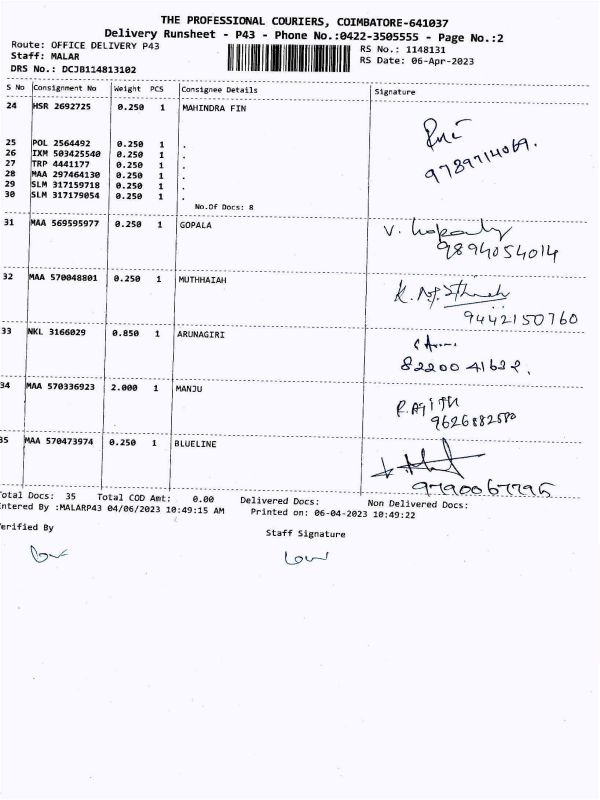 THE PROFESSIONAL COURIERS, COIMBATORE-641037
Delivery Runsheet - P43 - Phone No.:0422-3505555 - Page No.:2
Route: OFFICE DELIVERY P43 RS No.: 1148131
Staff: MALAR RS Date: 06-Apr-2023
DRS No.: DCJB114813102
S No Consignment No Weight PCS Consignee Details Signature
24 HSR 2692725 0.250 1 MAHINDRA FIN
9789714069.
25 POL 2564492 0.250 1 .
26 IXM 503425540 0.250 1 .
27 TRP 4441177 0.250 1 .
28 MAA 297464130 0.250 1 .
29 SLM 317159718 0.250 1 .
30 SLM 317179054 0.250 1 .
No.Of Docs: 8
31 MAA 569595977 0.250 1 GOPALA V.
9894054014
32 MAA 570048801 0.250 1 MUTHHAIAH K.
9442150760
33 NKL 3166029 0.850 1 ARUNAGIRI
34 MAA 570336923 2.000 1 MANJU
35 MAA 570473974 0.250 1 BLUELINE
Total Docs: 35 Total COD Amt: 0.00 Delivered Docs: Non Delivered Docs:
Entered By :MALARP43 04/06/2023 10:49:15 AM Printed on: 06-04-2023 10:49:22
Verified By Staff Signature